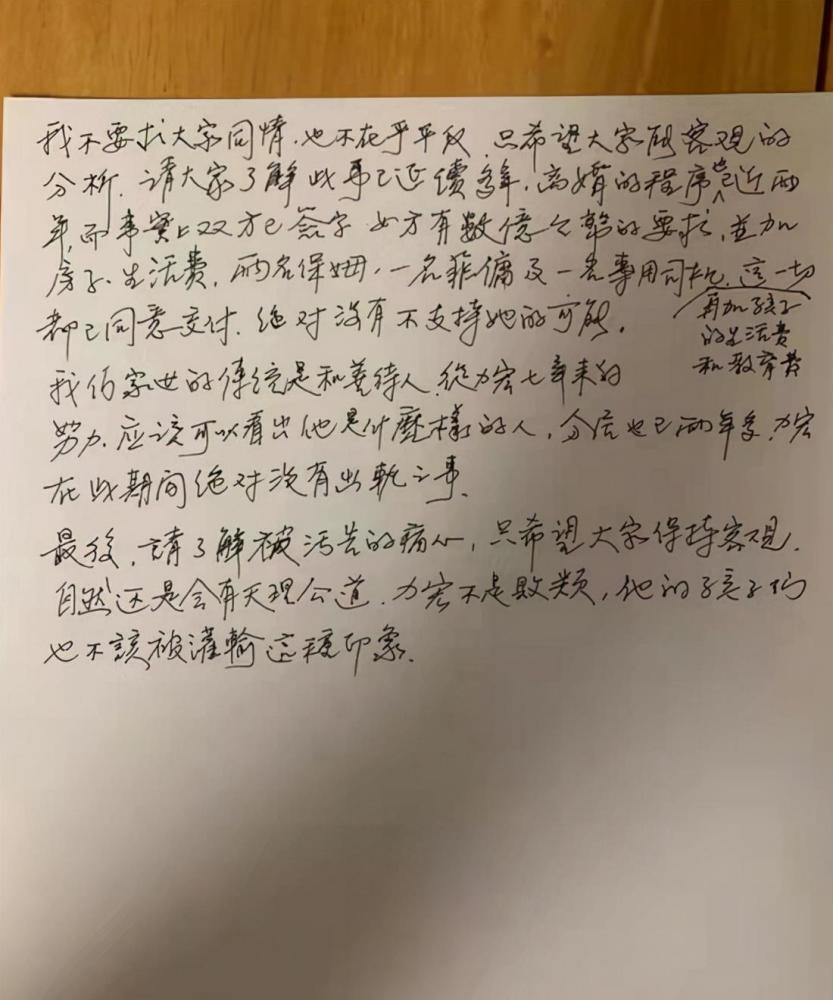 我不要求大家同情,也不在乎平反,只希望大家能客观的
分析.請大家了解此事已延續多年,离婚的程序也已近两
年,而事實上双方已簽字.女方有数億台幣的要求,並加
房子.生活費,兩名保姆,一名菲傭及一名專用司机.這一切
再加孩子
的生活费
和教育费
都已同意交付.绝对没有不支持她的可能.
我们家世的傳統是和善待人.從力宏七年来的
努力.应该可以看出他是什麼樣的人,分居也已两年多.力宏
在此期间绝对没有出軌之事.
最後,請了解被污告的痛心,只希望大家保持客观.
自然还是会有天理公道.力宏不是敗类,他的孩子们
也不該被灌輸這種印象.